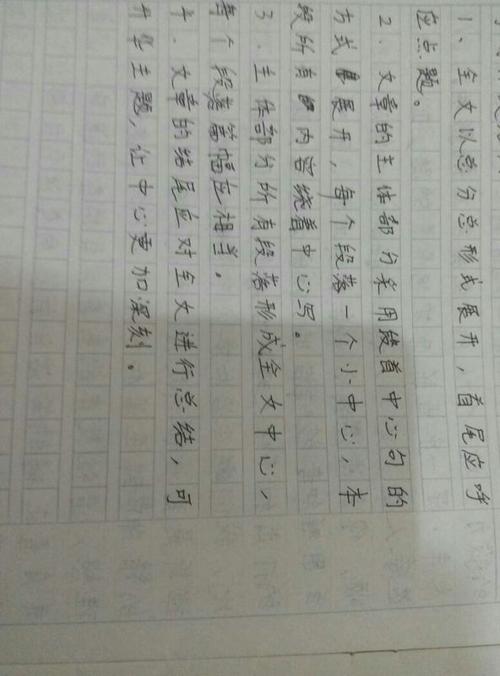 1、全文以总分总形式展开,首尾应呼
应点题。
2.文章的主体部分采用绕着中心句的
方式展开,每个段落一个小中心,本
段所有内容绕着中心写。
3.主体部分所有段落形成全文中心,
每个段落篇幅应相当。
4.文章的结尾应对全文进行总结,可
升华主题,让中心更加深刻。